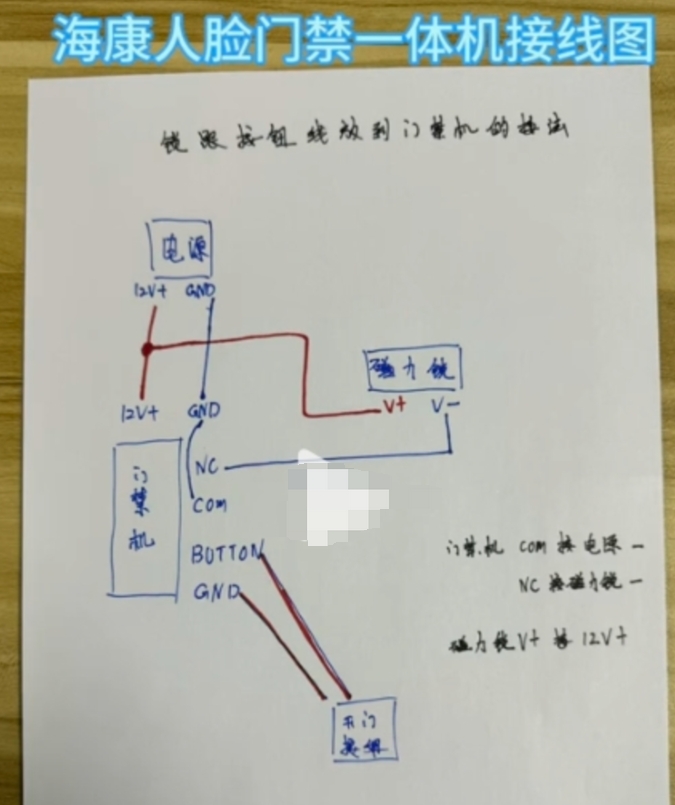 海康人脸门禁一体机接线图
锁跟按钮线放到门禁机的接法
电源
12V+ GND
磁力锁
V+ V-
12V+ GND
门禁机
NC
COM
BUTTON
GND
门禁机 COM 接电源 -
NC 接磁力锁 -
磁力锁V+ 接 12V+
开门
按钮